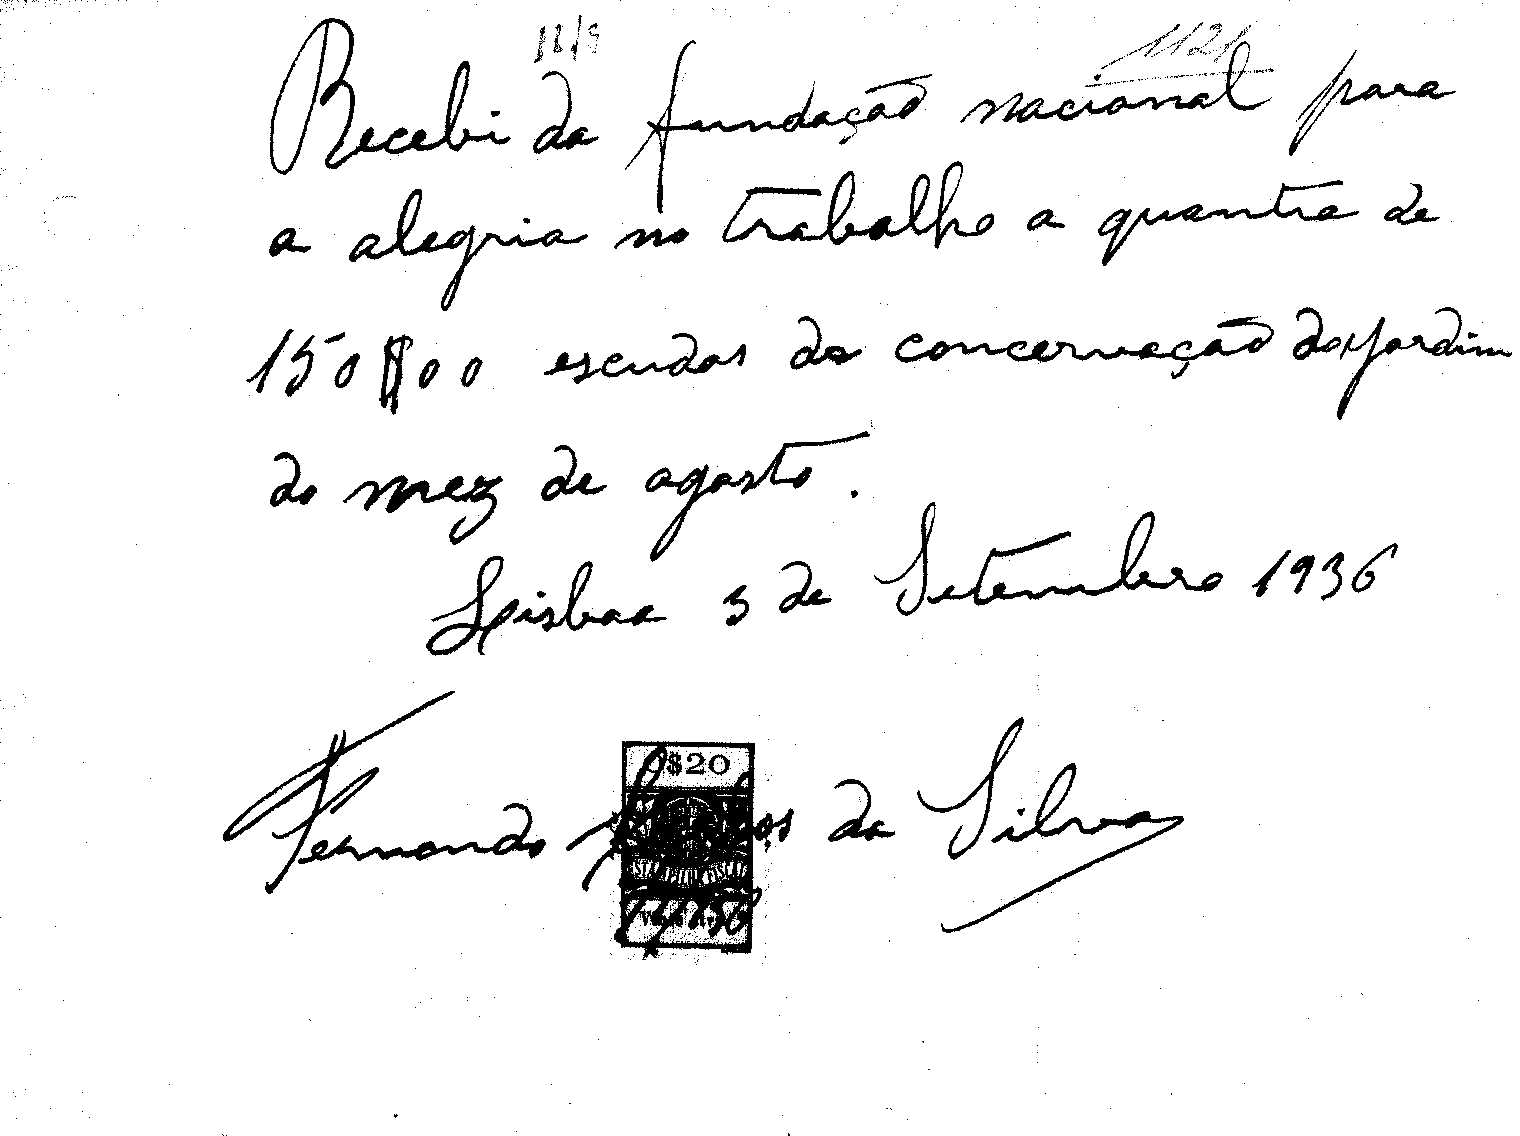 11/9
1121
Recebi da fundação nacional para
a alegria no trabalho a quantia de
150$00 escudos da concervação do jardim
do mez de agosto.
Lisboa 3 de Setembro 1936
$20
Fernando da Silva
ESTAMPILHA FISCAL